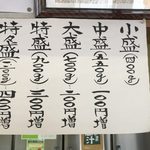 小盛(四〇〇g)
中盛(五五〇g) 一〇〇円増
大盛(七〇〇g) 二〇〇円増
特盛(九〇〇g) 三〇〇円増
特々盛 四〇〇円増